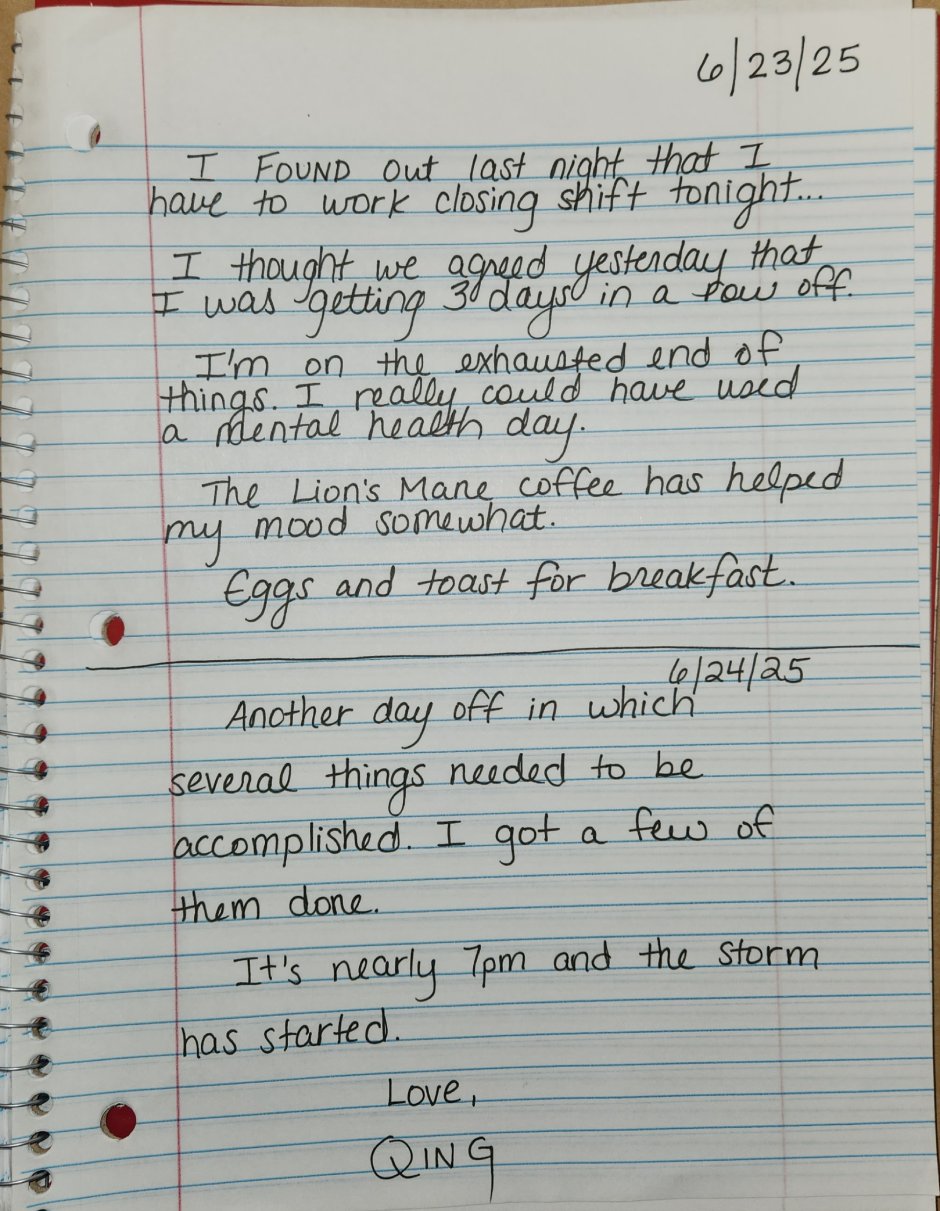 6/23/25
I FOUND out last night that I
have to work closing shift tonight...
I thought we agreed yesterday that
I was getting 3 days in a row off.
I'm on the exhausted end of
things. I really could have used
a mental health day.
The Lion's Mane coffee has helped
my mood somewhat.
Eggs and toast for breakfast.
6/24/25
Another day off in which
several things needed to be
accomplished. I got a few of
them done.
It's nearly 7pm and the storm
has started.
Love,
QING